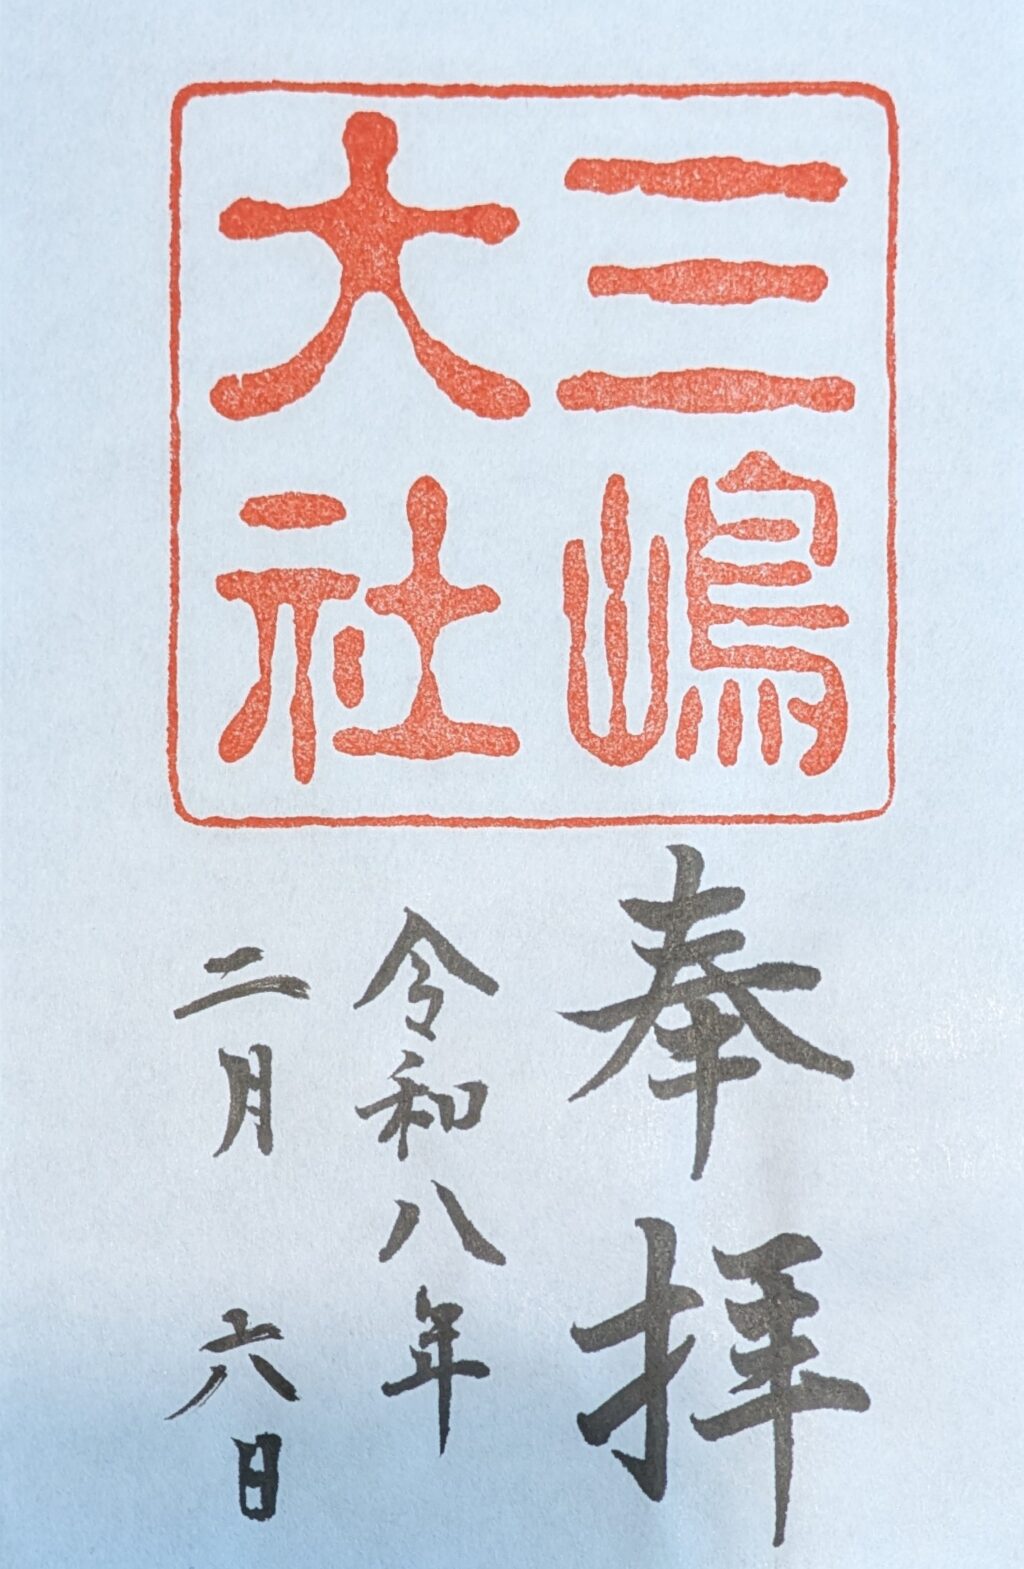 三嶋
大社
奉拝
令和八年
二月六日